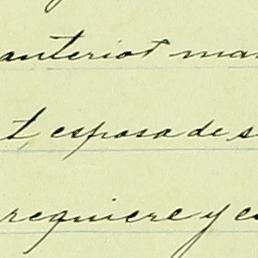 anterior ma
t, esposa de s
requiere y e